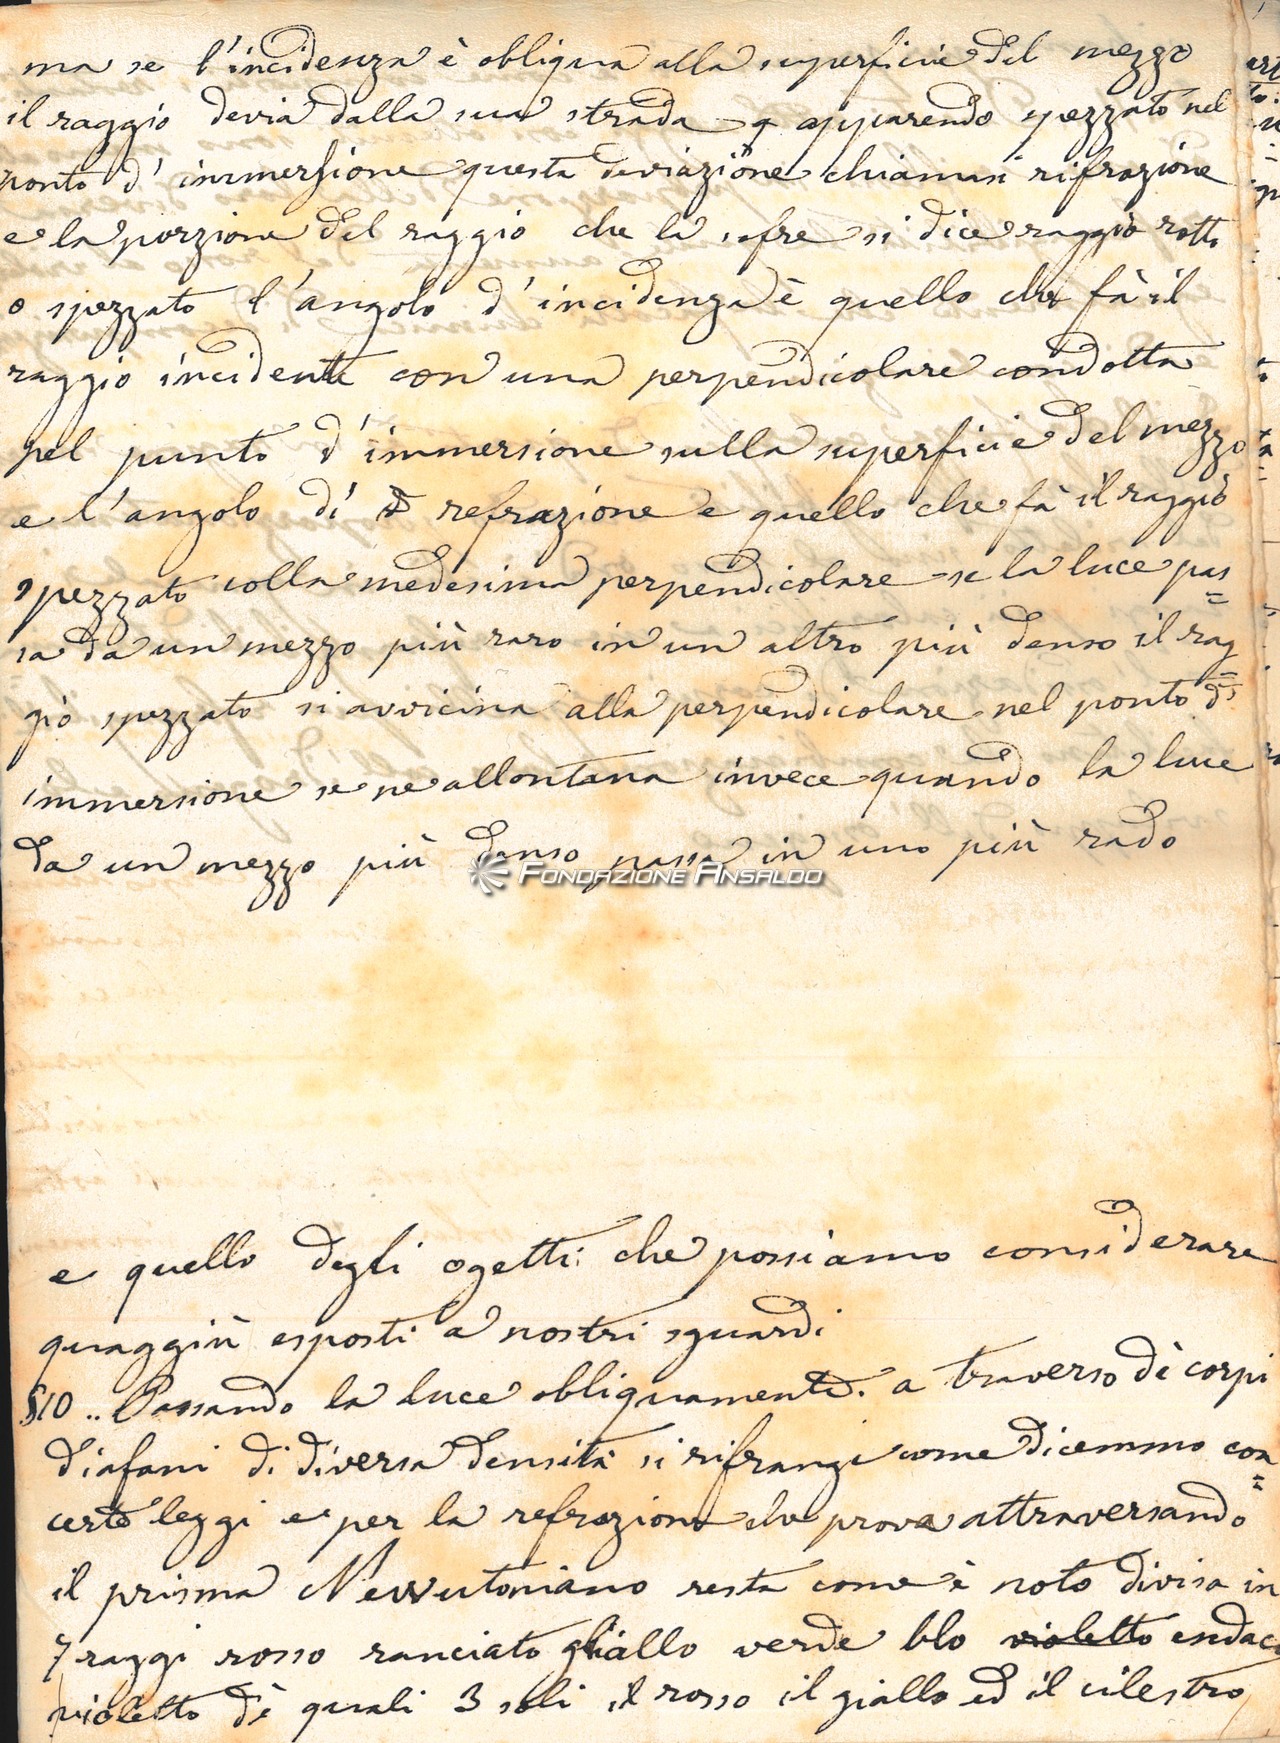 ma se l'incidenza è obliqua alla superficie del mezzo
il raggio devia dalla sua strada apparendo spezzato nel
ponto d' immersione questa deviazione chiamasi rifrazione
e la porzione del raggio che la sofre si dice raggio rotto
o spezzato l'angolo d'incidenza è quello che fà il
raggio incidente con una perpendicolare condotta
nel punto d'immersione sulla superficie del mezzo
e l'angolo di refrazione e quello che fà il raggio
spezzato colla medesima perpendicolare se la luce pas=
sa da un mezzo più raro in un altro più denso il rag=
gio spezzato si avvicina alla perpendicolare nel ponto d'
immersione se ne allontana invece quando la luce
da un mezzo più denso passa in uno più rado
Fondazione Ansaldo
e quello degli ogetti che possiamo considerare
quaggiù esposti a nostri sguardi
§10 .. Passando la luce obliquamente. a traverso di corpi
diafani di diversa densità si rifrange come dicemmo con=
certe leggi e per la refrazione che prova attraversando
il prisma Newutoniano resta come è noto divisa in
7 raggi rosso ranciato giallo verde blo violetto endaco
violetto dè quali 3 soli il rosso il giallo ed il cilestro